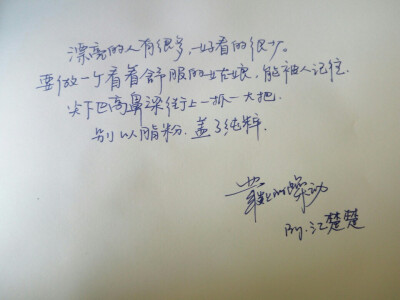 漂亮的人有很多，好看的很少。
要做一个看着舒服的姑娘，能被人记住.
尖下巴高鼻梁街上一抓一大把.
别以脂粉.盖了纯粹.
蕈上的躁动
By.江楚楚